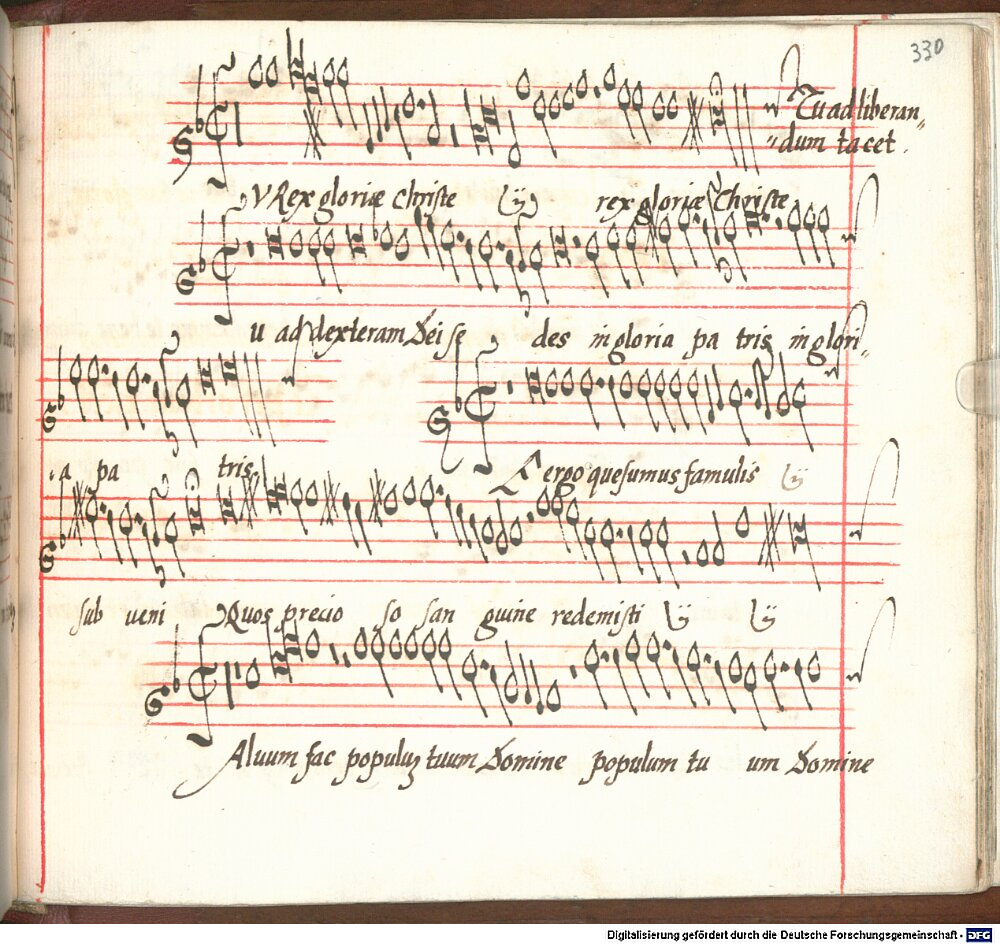 330
Tu ad liberan„
„dum tacet.
V Rex gloriæ Christe ij rex gloriæ Christe
u ad dexteram Dei se des in gloria pa tris in glori„
.a pa tris. E ergo quesumus famulis ij
sub veni Quos precio so san guine redemisti ij ij
Aluum fac populuȝ tuum Domine populum tu um Domine
Digitalisierung gefördert durch die Deutsche Forschungsgemeinschaft - DFG